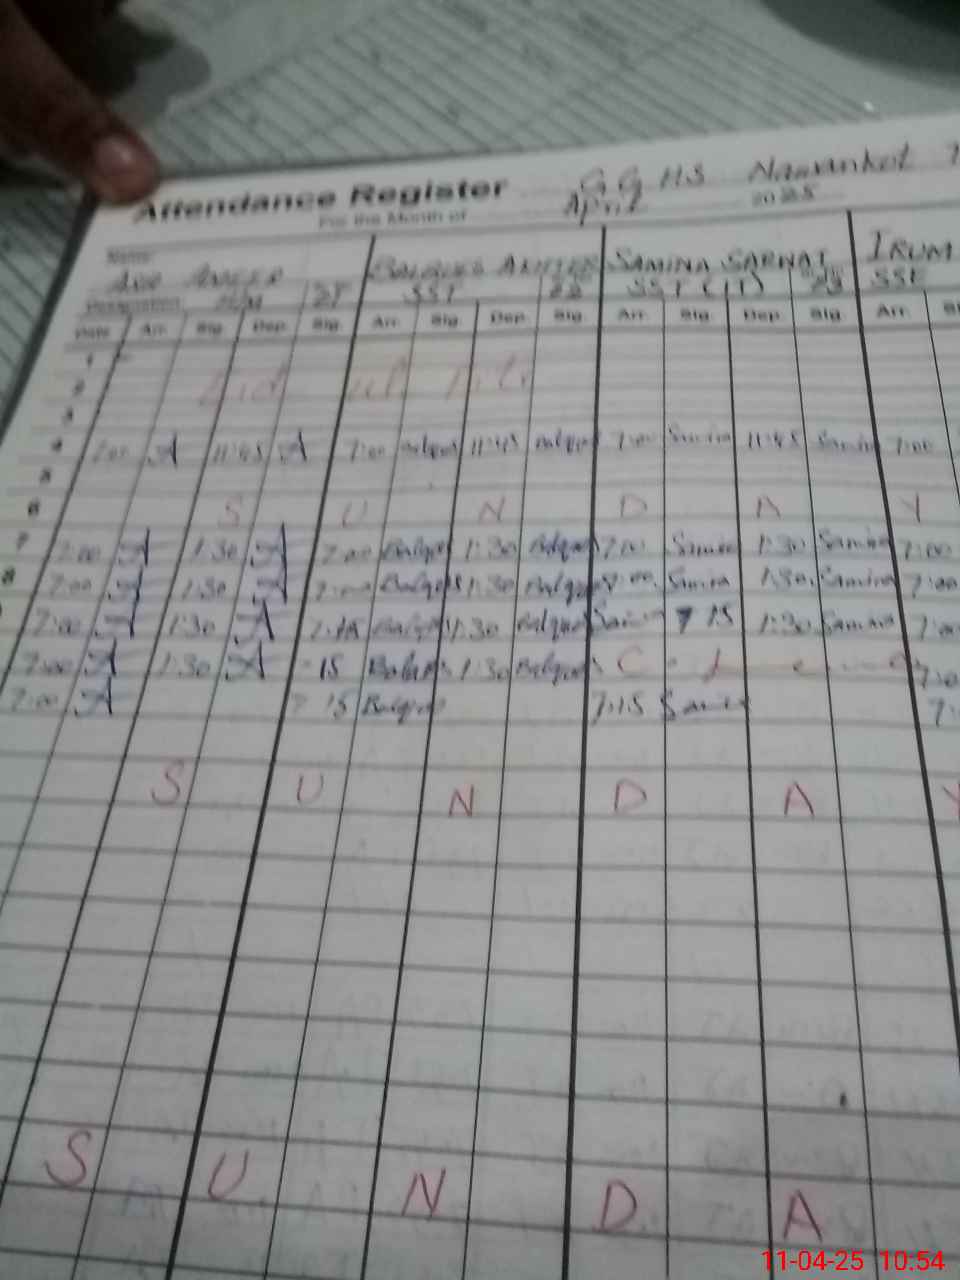 Attendance Register GGHS Nawankot
For the Month of April 2025
Name
BALQUES AKHTER SAMINA SARWAT IRUM
Designation SST 22 SST (IT) 23 SSE
Date Arr. Sig. Dep. Sig. Arr. Sig. Dep. Sig. Arr. Sig. Dep. Sig. Arr.
1
2 Eid ul
3
4 7:00 A 11:45 A 7:00 Balques 11:45 Balques 7:00 Samina 11:45 Samina 7:00
5
6 S U N D A Y
7 7:00 A 1:30 A 7:00 Balques 1:30 Balques 7:00 Samina 1:30 Samina 7:00
8 7:00 A 1:30 A 7:00 Balques 1:30 Balques 7:00 Samina 1:30 Samina 7:00
7:00 A 1:30 A Balques 1:30 Balques Samina 7 15 1:30 Samina 7:00
7:00 A 1:30 A 15 Balques 1:30 Balques C
7:00 A 7 15 Balques 7:15 Samina
S U N D A Y
S U N D A
11-04-25 10:54